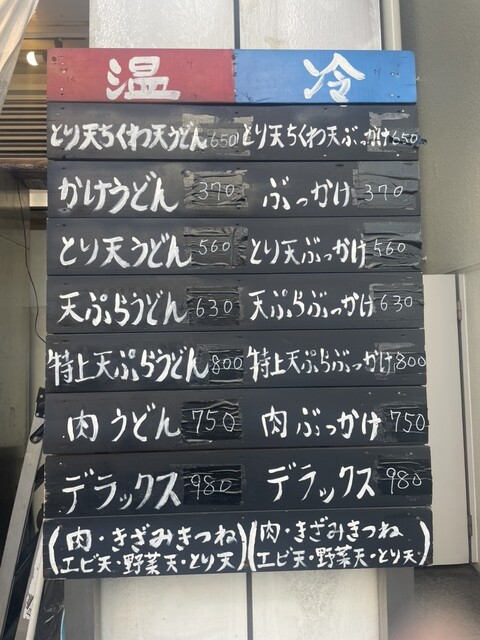 温 冷
とり天ちくわ天うどん 650 とり天ちくわ天ぶっかけ 650
かけうどん 370 ぶっかけ 370
とり天うどん 560 とり天ぶっかけ 560
天ぷらうどん 630 天ぷらぶっかけ 630
特上天ぷらうどん 800 特上天ぷらぶっかけ 800
肉うどん 750 肉ぶっかけ 750
デラックス 980 デラックス 980
(肉・きざみきつね (肉・きざみきつね
エビ天・野菜天・とり天) エビ天・野菜天・とり天)